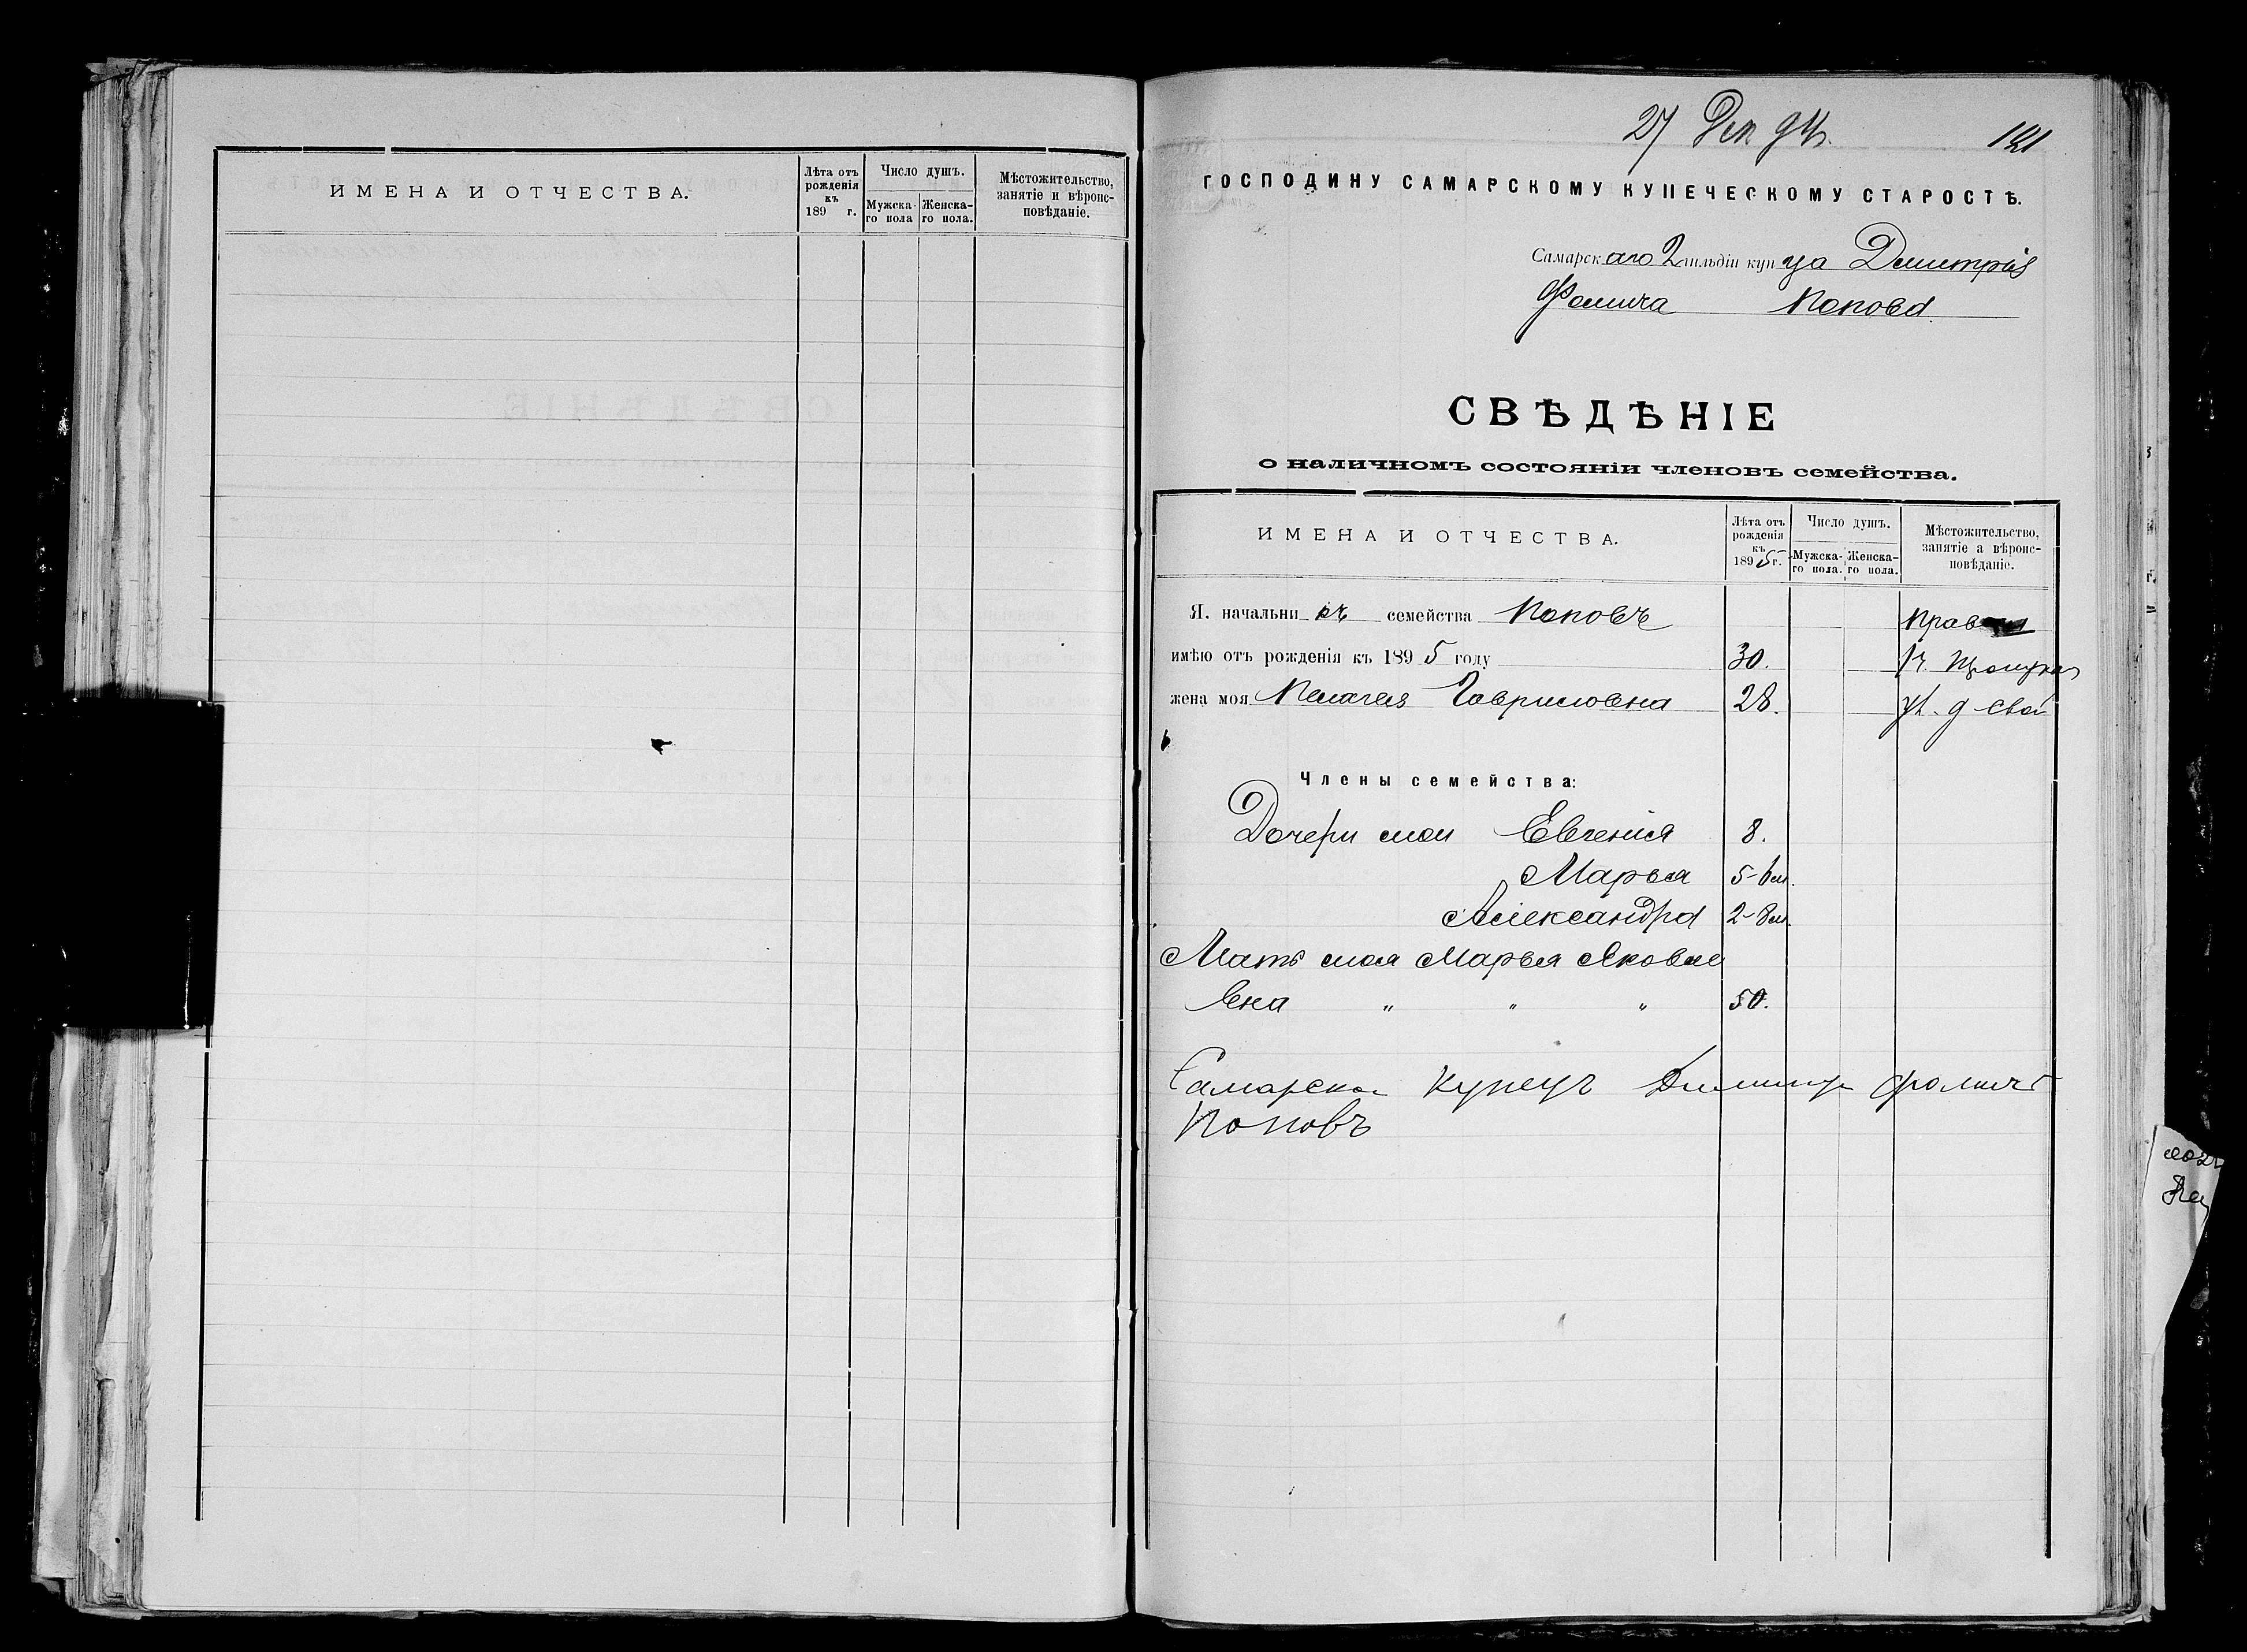 ИМЕНА И ОТЧЕСТВА.
Лѣта отъ рожденія къ 189 г.
Число душъ.
Мужска-го пола
Женска-го пола.
Мѣстожительство, занятіе и вѣроис-повѣданіе.
27 Дек 94.
ГОСПОДИНУ САМАРСКОМУ КУПЕЧЕСКОМУ СТАРОСТѢ.
Самарскаго 2 гильдіи купца Дмитрія
Фомича Попова.
СВѢДѢНІЕ
о наличномъ состояніи членовъ семейства.
ИМЕНА И ОТЧЕСТВА.
Лѣта отъ рожденія къ 1895 г.
Число душъ.
Мужска-го пола.
Женска-го пола.
Мѣстожительство, занятіе а вѣроис-повѣданіе.
Я. начальникъ семейства Поповъ
имѣю отъ рожденія къ 1895 году 30.
жена моя Пелагея Гавриловна 28. ул. д. свой
Члены семейства:
Дочери мои Евгенія 8.
Марья 5-6 м.
Александра 2-8 м.
Мать моя Марья Яковле
вна " " " 50.
Самарской Купецъ Фомичъ
Поповъ